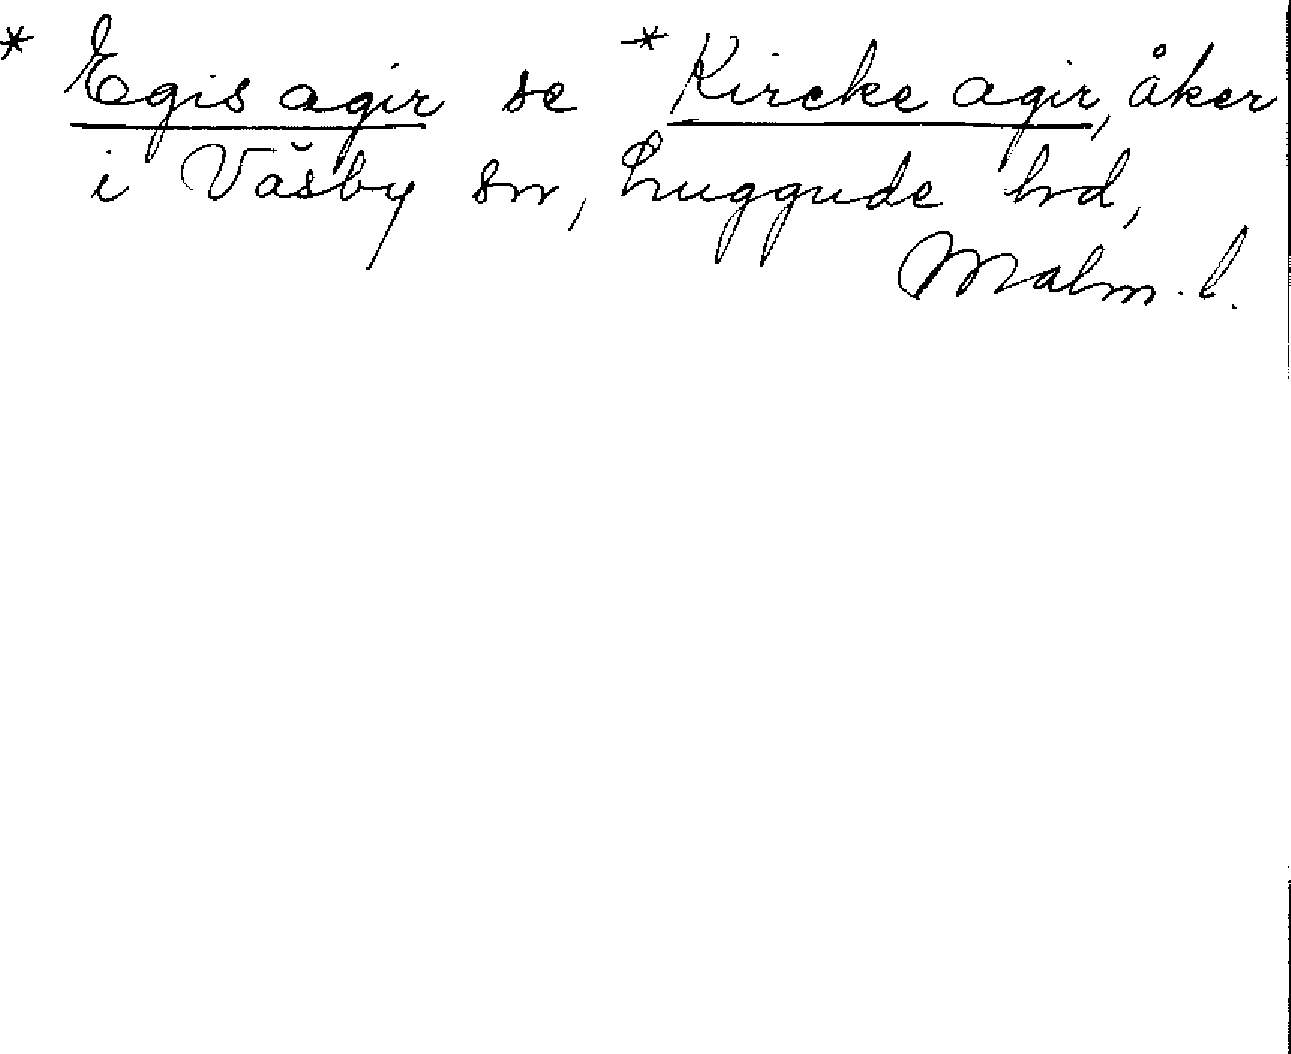 * Egis agir se * Kircke agir, åker
i Väsby sn, Luggude hd,
Malm. l.